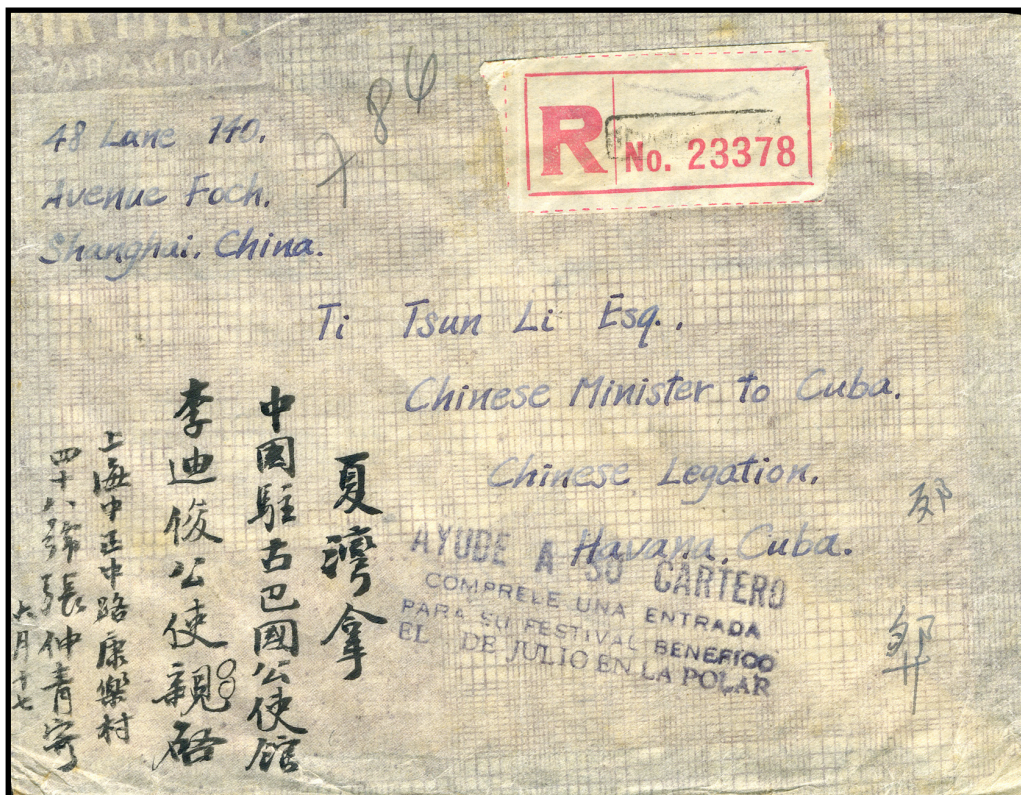 48 Lane 740.
Avenue Foch.
Shanghai, China.
R
No. 23378
Ti Tsun Li Esq.,
Chinese Minister to Cuba.
Chinese Legation.
Havana, Cuba.
AYUDE A SU CARTERO
COMPRELE UNA ENTRADA
PARA SU FESTIVAL BENEFICO
EL DE JULIO EN LA POLAR
夏灣拿
中國駐古巴國公使館
李迪俊公使親啓
上海中正中路康樂村
四十八號張仲青寄
六月十七